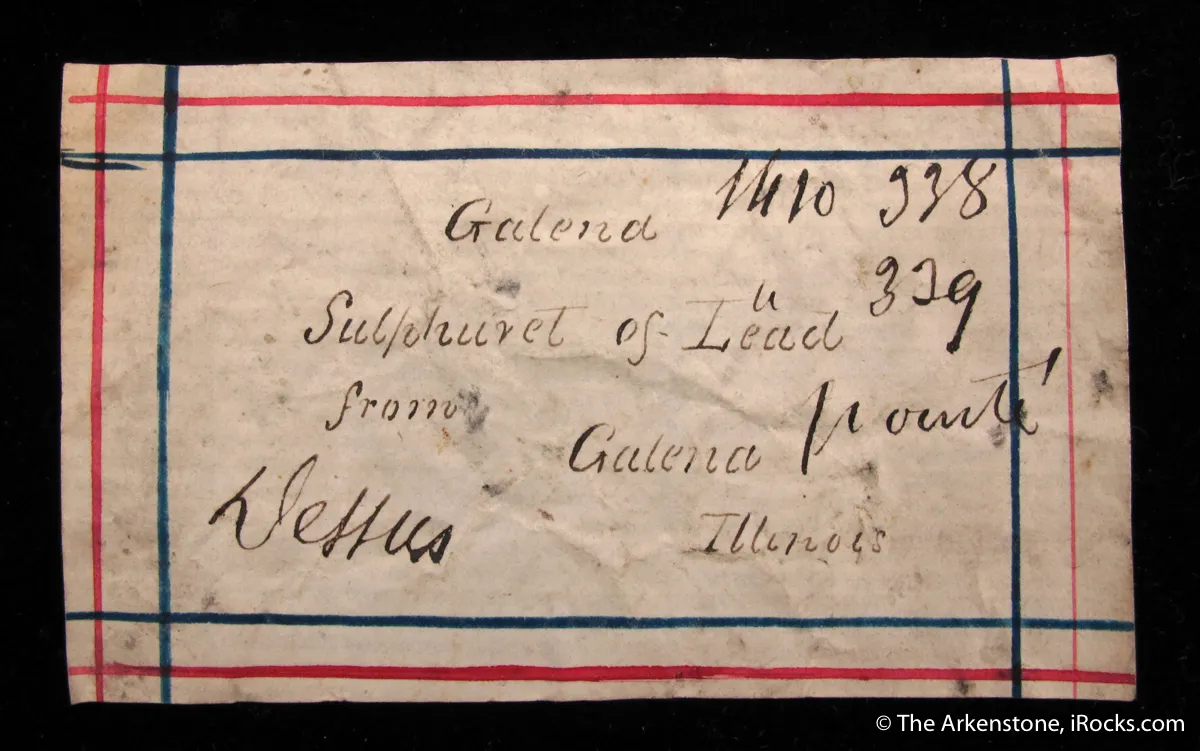 Galena 1410 338
339
Sulphuret of Lead
from
pointé
Galena
Dessus
Illinois
© The Arkenstone, iRocks.com